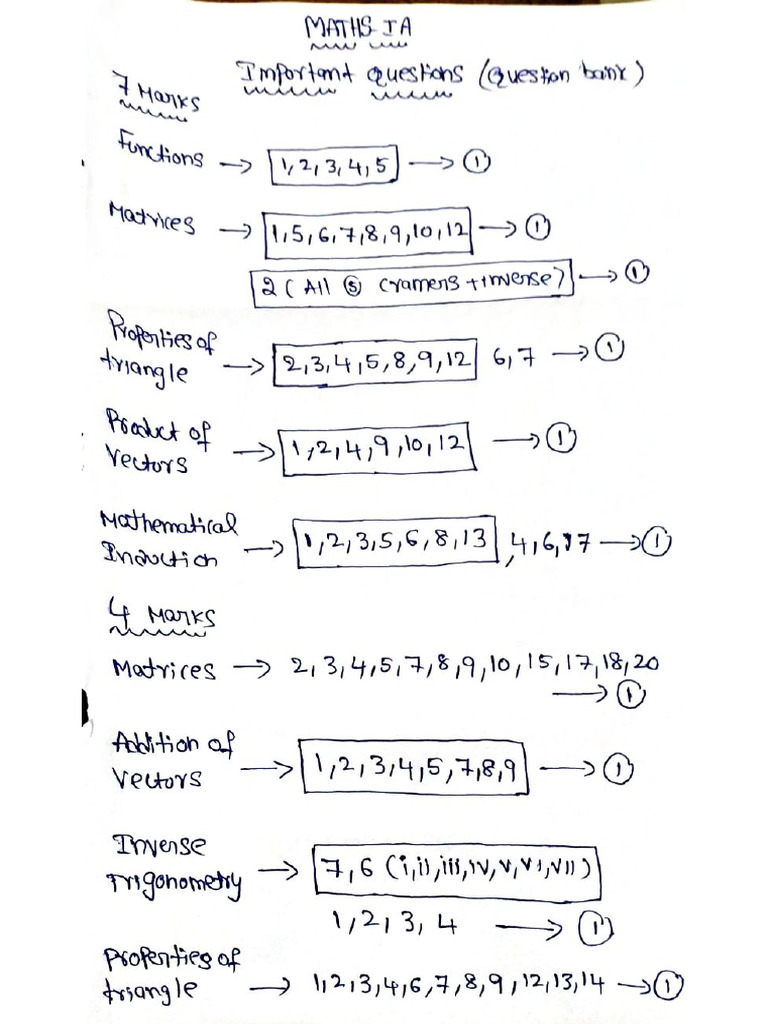 MATHS IA
Important questions (Question bank)
7 Marks
Functions → 1,2,3,4,5 → ①
Matrices → 1,5,6,7,8,9,10,12 → ①
2 (All ⑤ Cramers + inverse) → ①
Properties of
triangle → 2,3,4,5,8,9,12 6,7 → ①
Product of
Vectors → 1,2,4,9,10,12 → ①
Mathematical
Induction → 1,2,3,5,6,8,13 ,4,6,17 → ①
4 Marks
Matrices → 2,3,4,5,7,8,9,10,15,17,18,20
→ ①
Addition of
Vectors → 1,2,3,4,5,7,8,9 → ①
Inverse
Trigonometry → 7,6 (i,ii,iii,iv,v,vi,vii)
1,2,3,4 → ①
Properties of
triangle → 1,2,3,4,6,7,8,9,12,13,14 → ①